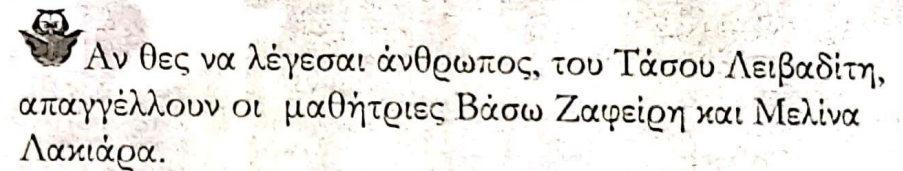 Αν θες να λέγεσαι άνθρωπος, του Τάσου Λειβαδίτη,
απαγγέλλουν οι μαθήτριες Βάσω Ζαφείρη και Μελίνα
Λακιάρα.